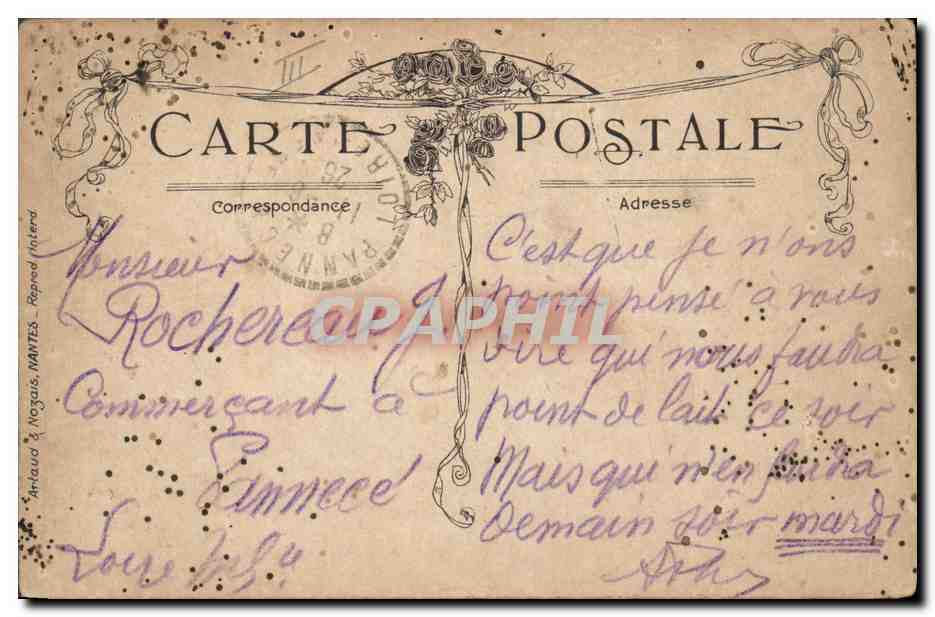 III
CARTE POSTALE
Correspondance
Adresse
PANNECÉ
LOIR
8
28
Monsieur
Rochereau J
Commerçant à
Pannecé
Loire Infre
C'est que je n'ons
point pensé a vous
dire qu'i nous faudra
point de lait ce soir
Mais qu'i m'en faudra
Demain soir mardi
CPAPHIL
Artaud & Nozais, NANTES _ Reprod. Interd